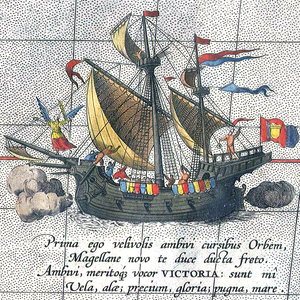 Prima ego velivolis ambivi cursibus Orbem,
Magellane novo te duce ducta freto.
Ambivi, meritoq; vocor VICTORIA: sunt mî
Vela, alæ; precium, gloria; pugna, mare.